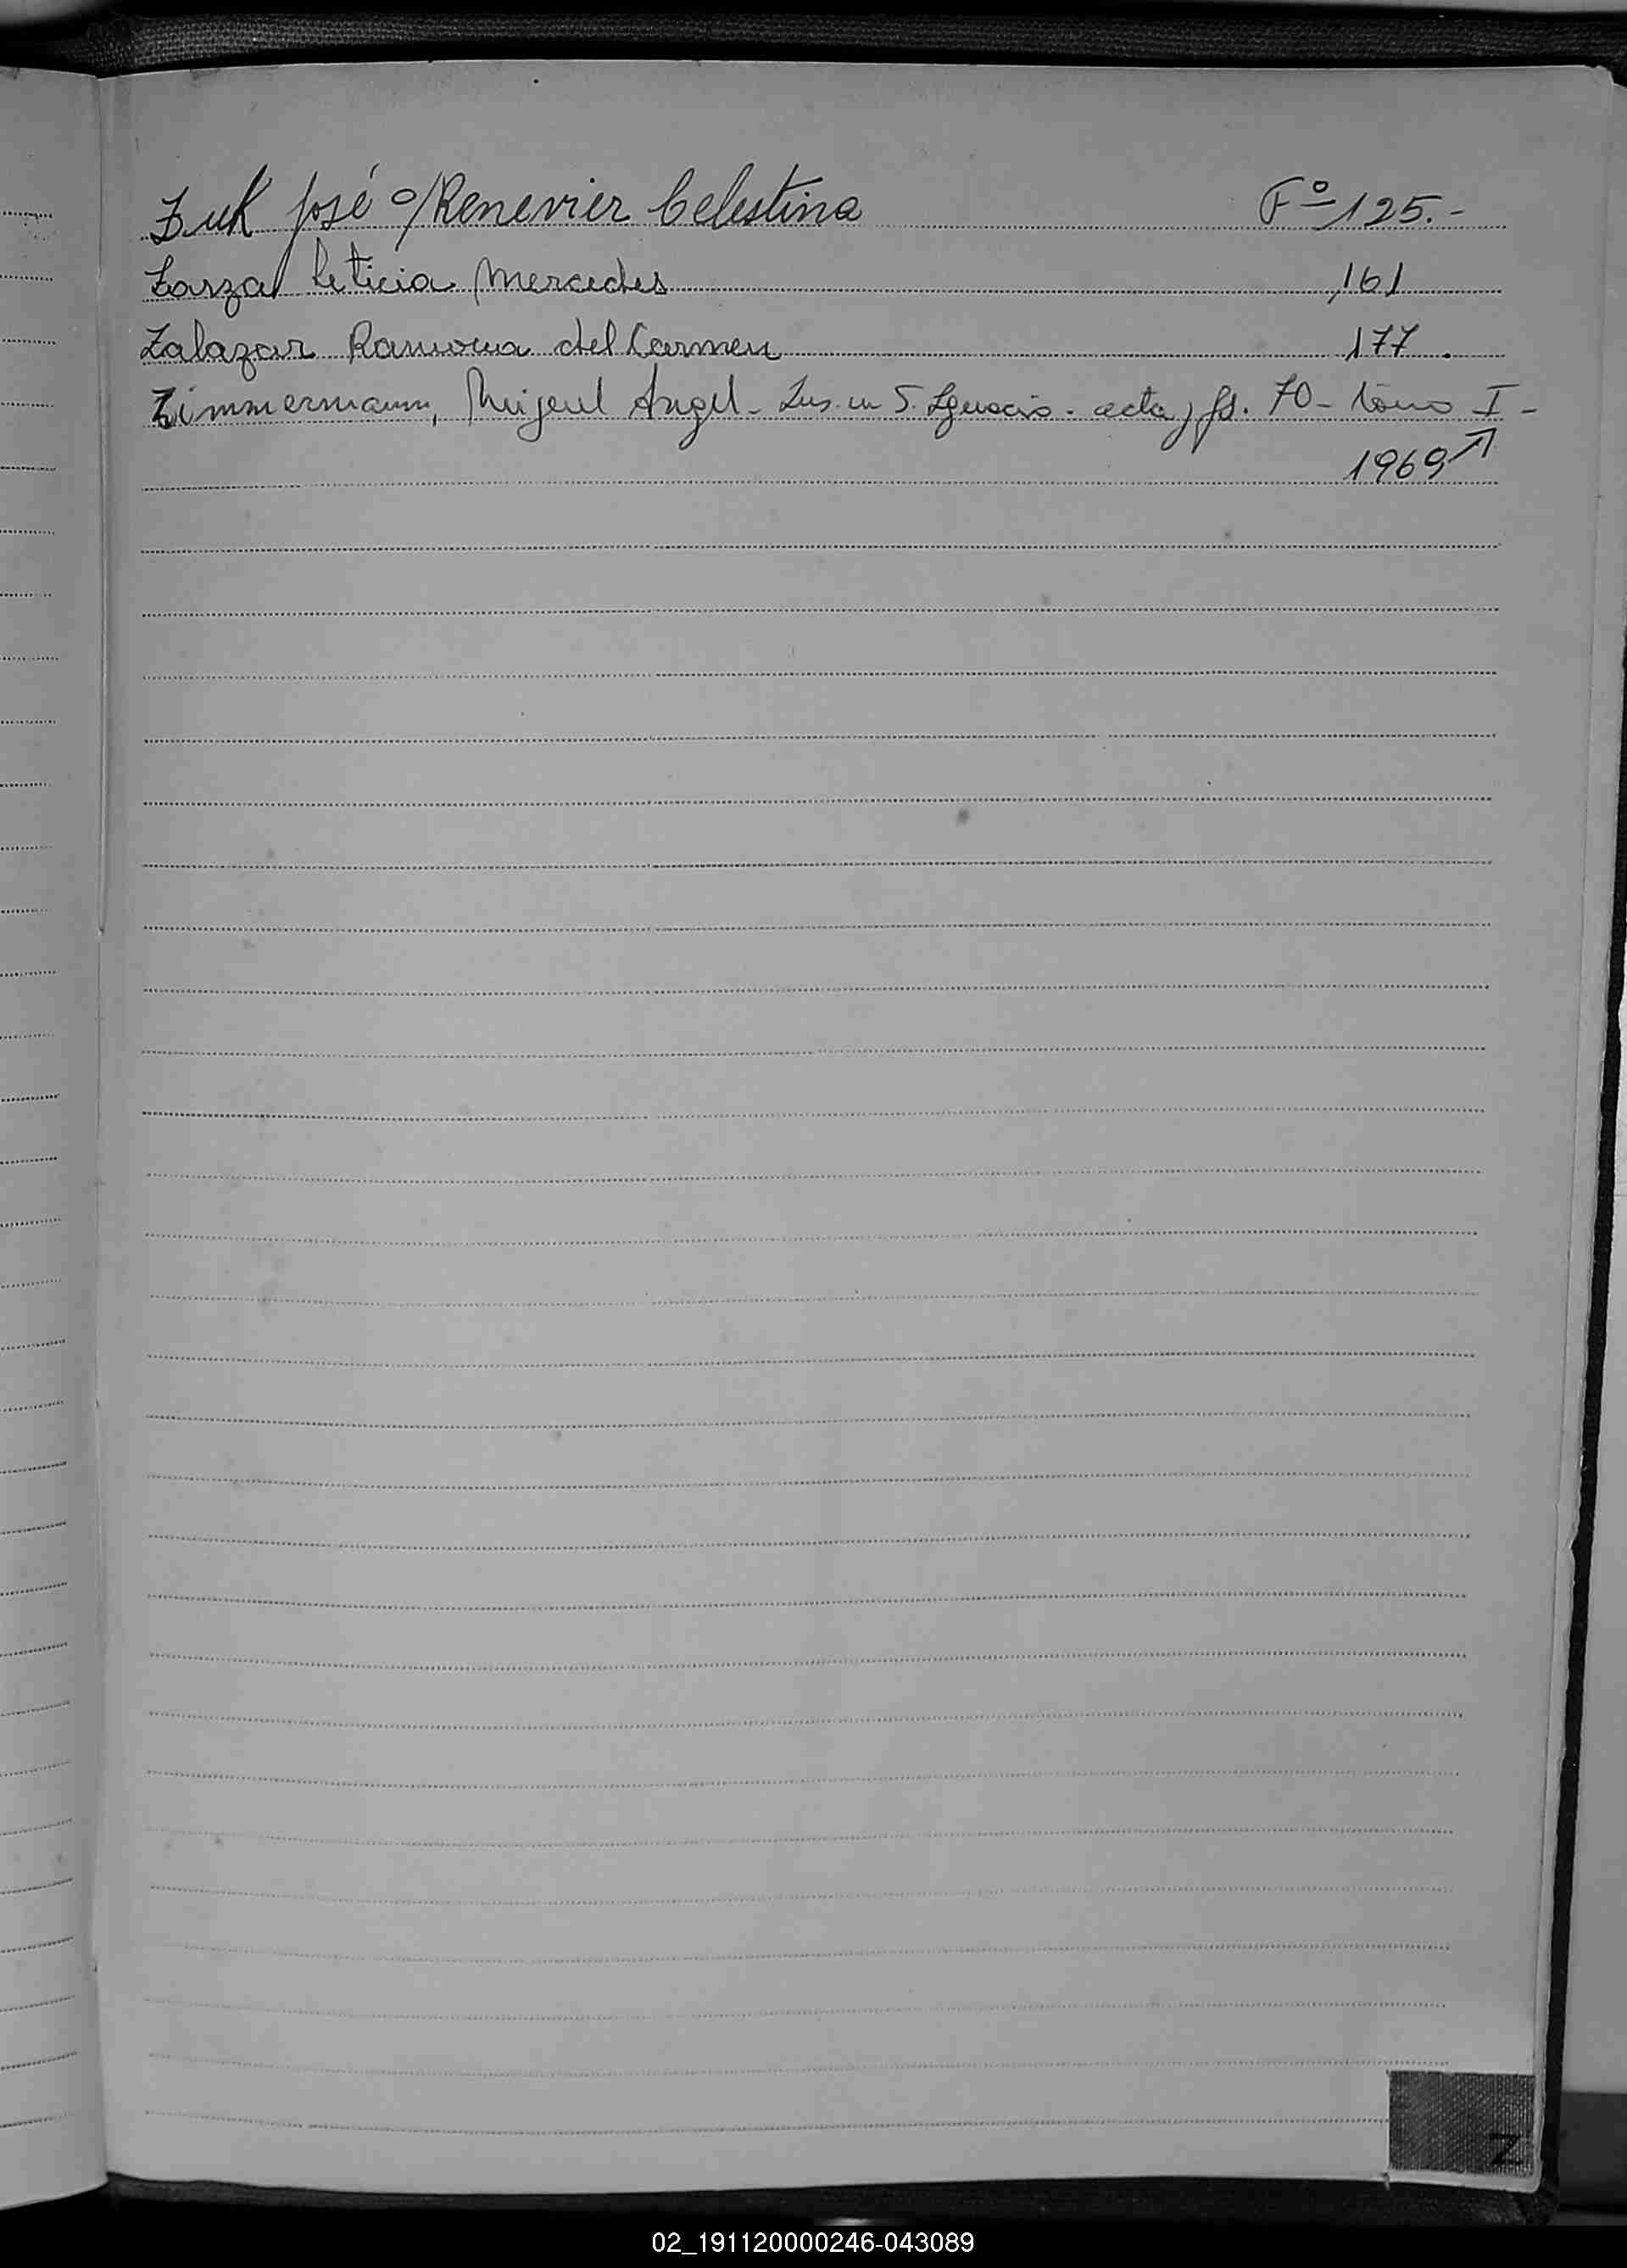 Zuk José c/Renevier Celestina Fº 125.-
Zarza Leticia Mercedes 161
Zalazar Ramona del Carmen 177.
Zimmermann, Miguel Angel - Ins. en S. Ignacio - acta y fs. 70 - tomo I -
1969 ↗
Z
02_191120000246-043089